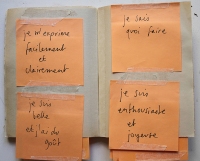 je m'exprime
facilement
et
clairement
je sais
quoi faire
je suis
belle
et j'ai du
goût
je suis
enthousiaste
et
joyeuse